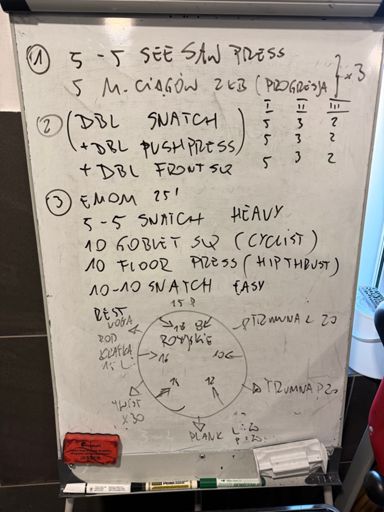 ① 5-5 SEE SAW PRESS
5 M. CIĄGÓW 2KB (PROGRESJA) x3
I II III
② (DBL SNATCH 5 3 2
+ DBL PUSHPRESS) 5 3 2
+ DBL FRONT SQ 5 3 2
③ EMOM 25'
5-5 SNATCH HEAVY
10 GOBLET SQ (CYCLIST)
10 FLOOR PRESS (HIPTHRUST)
10-10 SNATCH EASY
REST
15 P
NOGA
POD
KLATKĄ
15 L
18 8
ROSYJSKIE
16 10
12
TRUMNA L 20
TRUMNA P 20
TWIST
X30
PLANK L:20
P:20